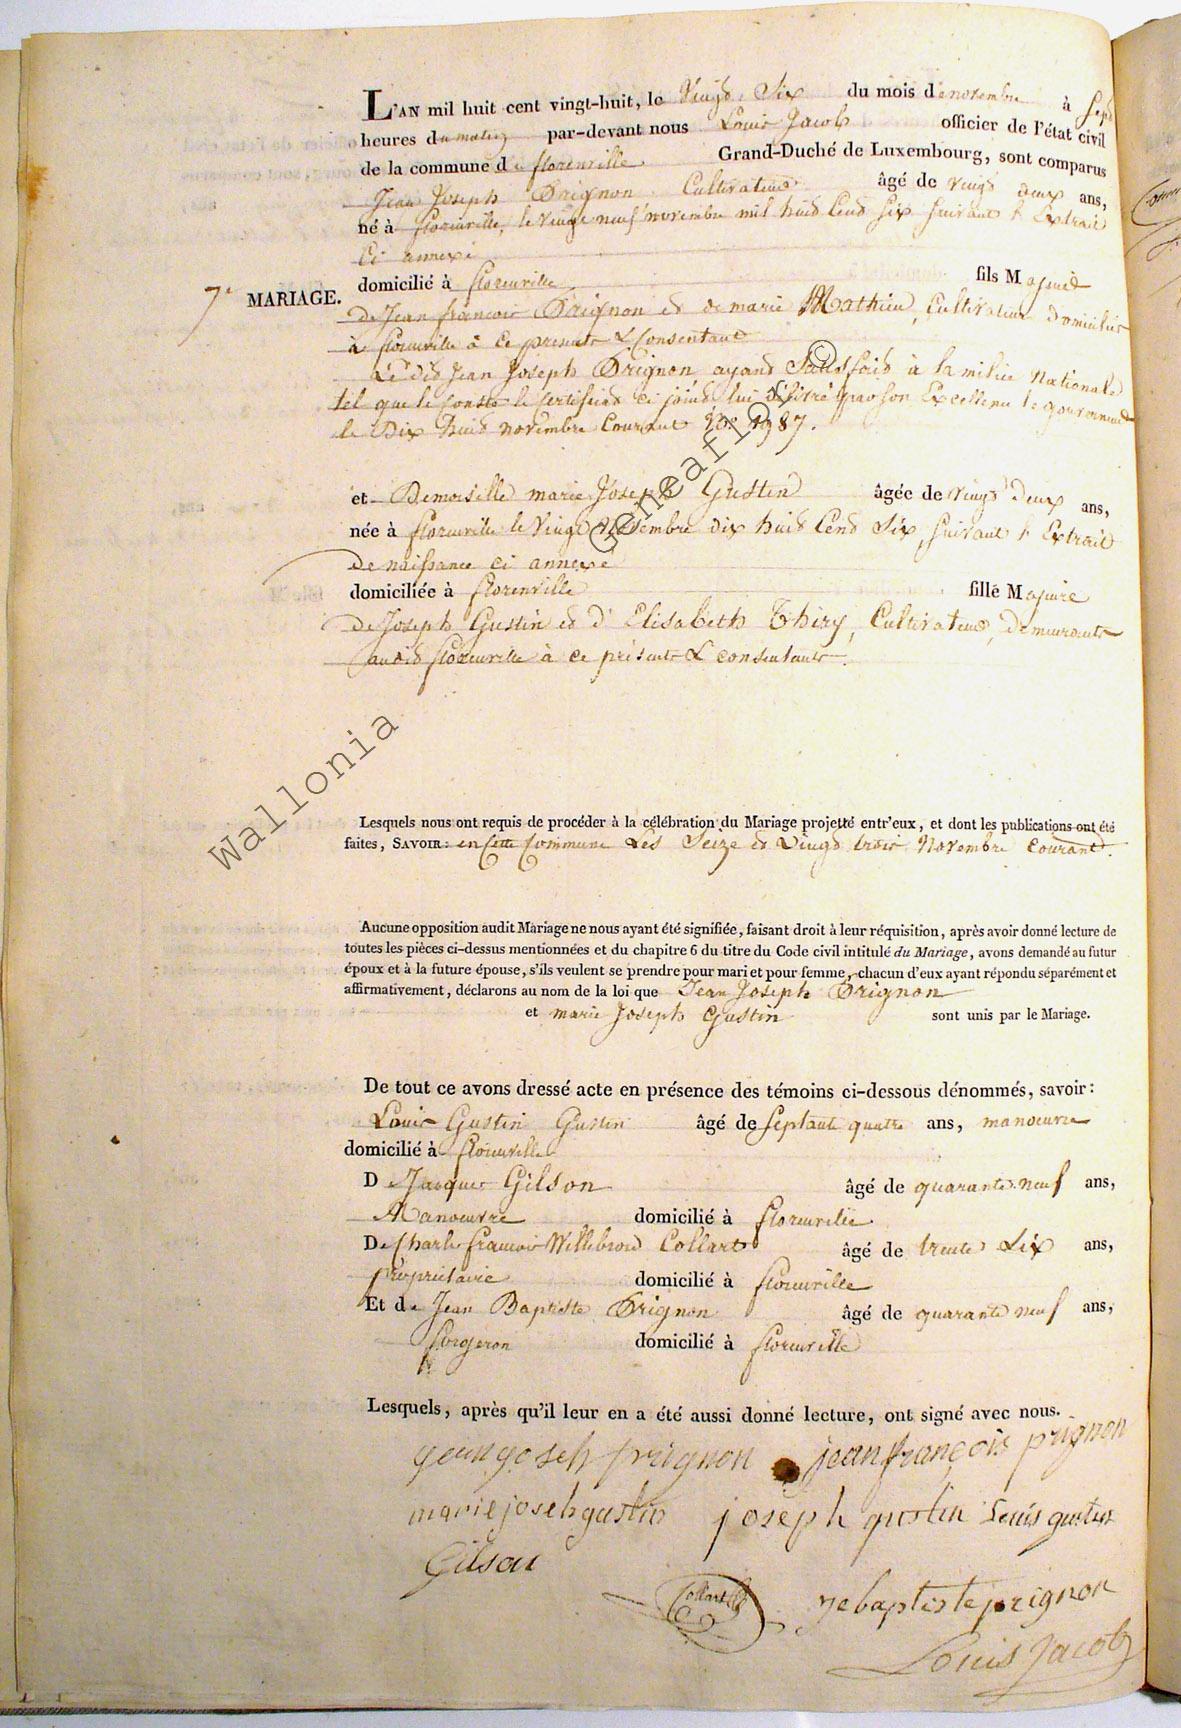 L'AN mil huit cent vingt-huit, le Vingt Six du mois de novembre à Sept
heures du matin par-devant nous Louis Jacob officier de l'état civil
de la commune de florenville Grand-Duché de Luxembourg, sont comparus
Jean Joseph Prignon Cultivateur âgé de vingt deux ans,
né à florenville, le Vingt neuf novembre mil huit Cent Six suivant l'Extrait
Ci annexé
domicilié à florenville fils Majeur
7e MARIAGE.
de Jean françois Prignon et de marie Mathieu, Cultivateur domiciliés
à florenville à ce présents & Consentant
Ledit Jean Joseph Prignon ayant Satisfait à la milice Nationale
tel que le Conste le Certificat ci joint lui délivré par son Excellence le gouverneur
le Dix huit novembre Courant No 1987.
et Demoiselle marie Joseph Gustin âgée de vingt deux ans,
née à florenville le Vingt Décembre dix huit Cent Six, suivant l'Extrait
de naissance ci annexé
domiciliée à florenville fille Majeure
de Joseph Gustin et d'Elisabeth Thiry, Cultivateur, demeurants
audit florenville à ce présents & consentants.
Lesquels nous ont requis de procéder à la célébration du Mariage projetté entr'eux, et dont les publications ont été
faites, SAVOIR: en Cette Commune Les Seize et Vingt trois Novembre Courant.
Aucune opposition audit Mariage ne nous ayant été signifiée, faisant droit à leur réquisition, après avoir donné lecture de
toutes les pièces ci-dessus mentionnées et du chapitre 6 du titre du Code civil intitulé du Mariage, avons demandé au futur
époux et à la future épouse, s'ils veulent se prendre pour mari et pour femme, chacun d'eux ayant répondu séparément et
affirmativement, déclarons au nom de la loi que Jean Joseph Prignon
et marie Joseph Gustin sont unis par le Mariage.
De tout ce avons dressé acte en présence des témoins ci-dessous dénommés, savoir:
Louis Gustin Gustin âgé de Septante quatre ans, manoeuvre
domicilié à florenville
De Jacques Gilson âgé de quarante neuf ans,
Manoeuvre domicilié à florenville
De Charles françois Willebrord Collart âgé de trente Six ans,
propriétaire domicilié à florenville
Et de Jean Baptiste Prignon âgé de quarante neuf ans,
forgeron domicilié à florenville
Lesquels, après qu'il leur en a été aussi donné lecture, ont signé avec nous.
jean josseh prignon jean françois prignon
marie joseh gustin joseph gustin Louis gustin
Gilson
Collart jebaptiste prignon
Louis Jacob
Wallonia Geneaflor ©